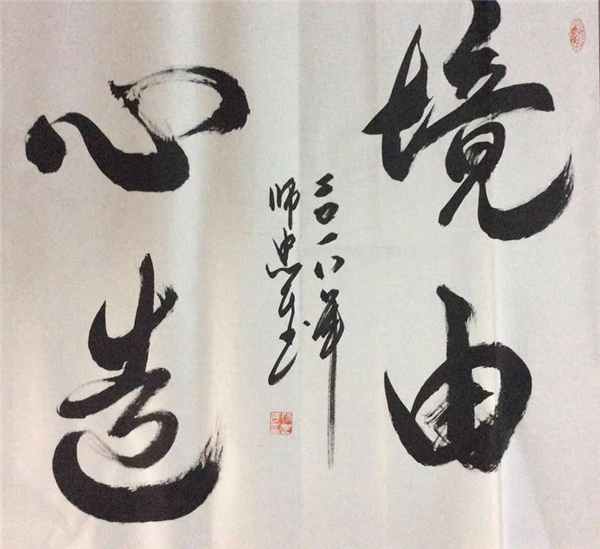 境由
心造
二〇一八年
师忠玉